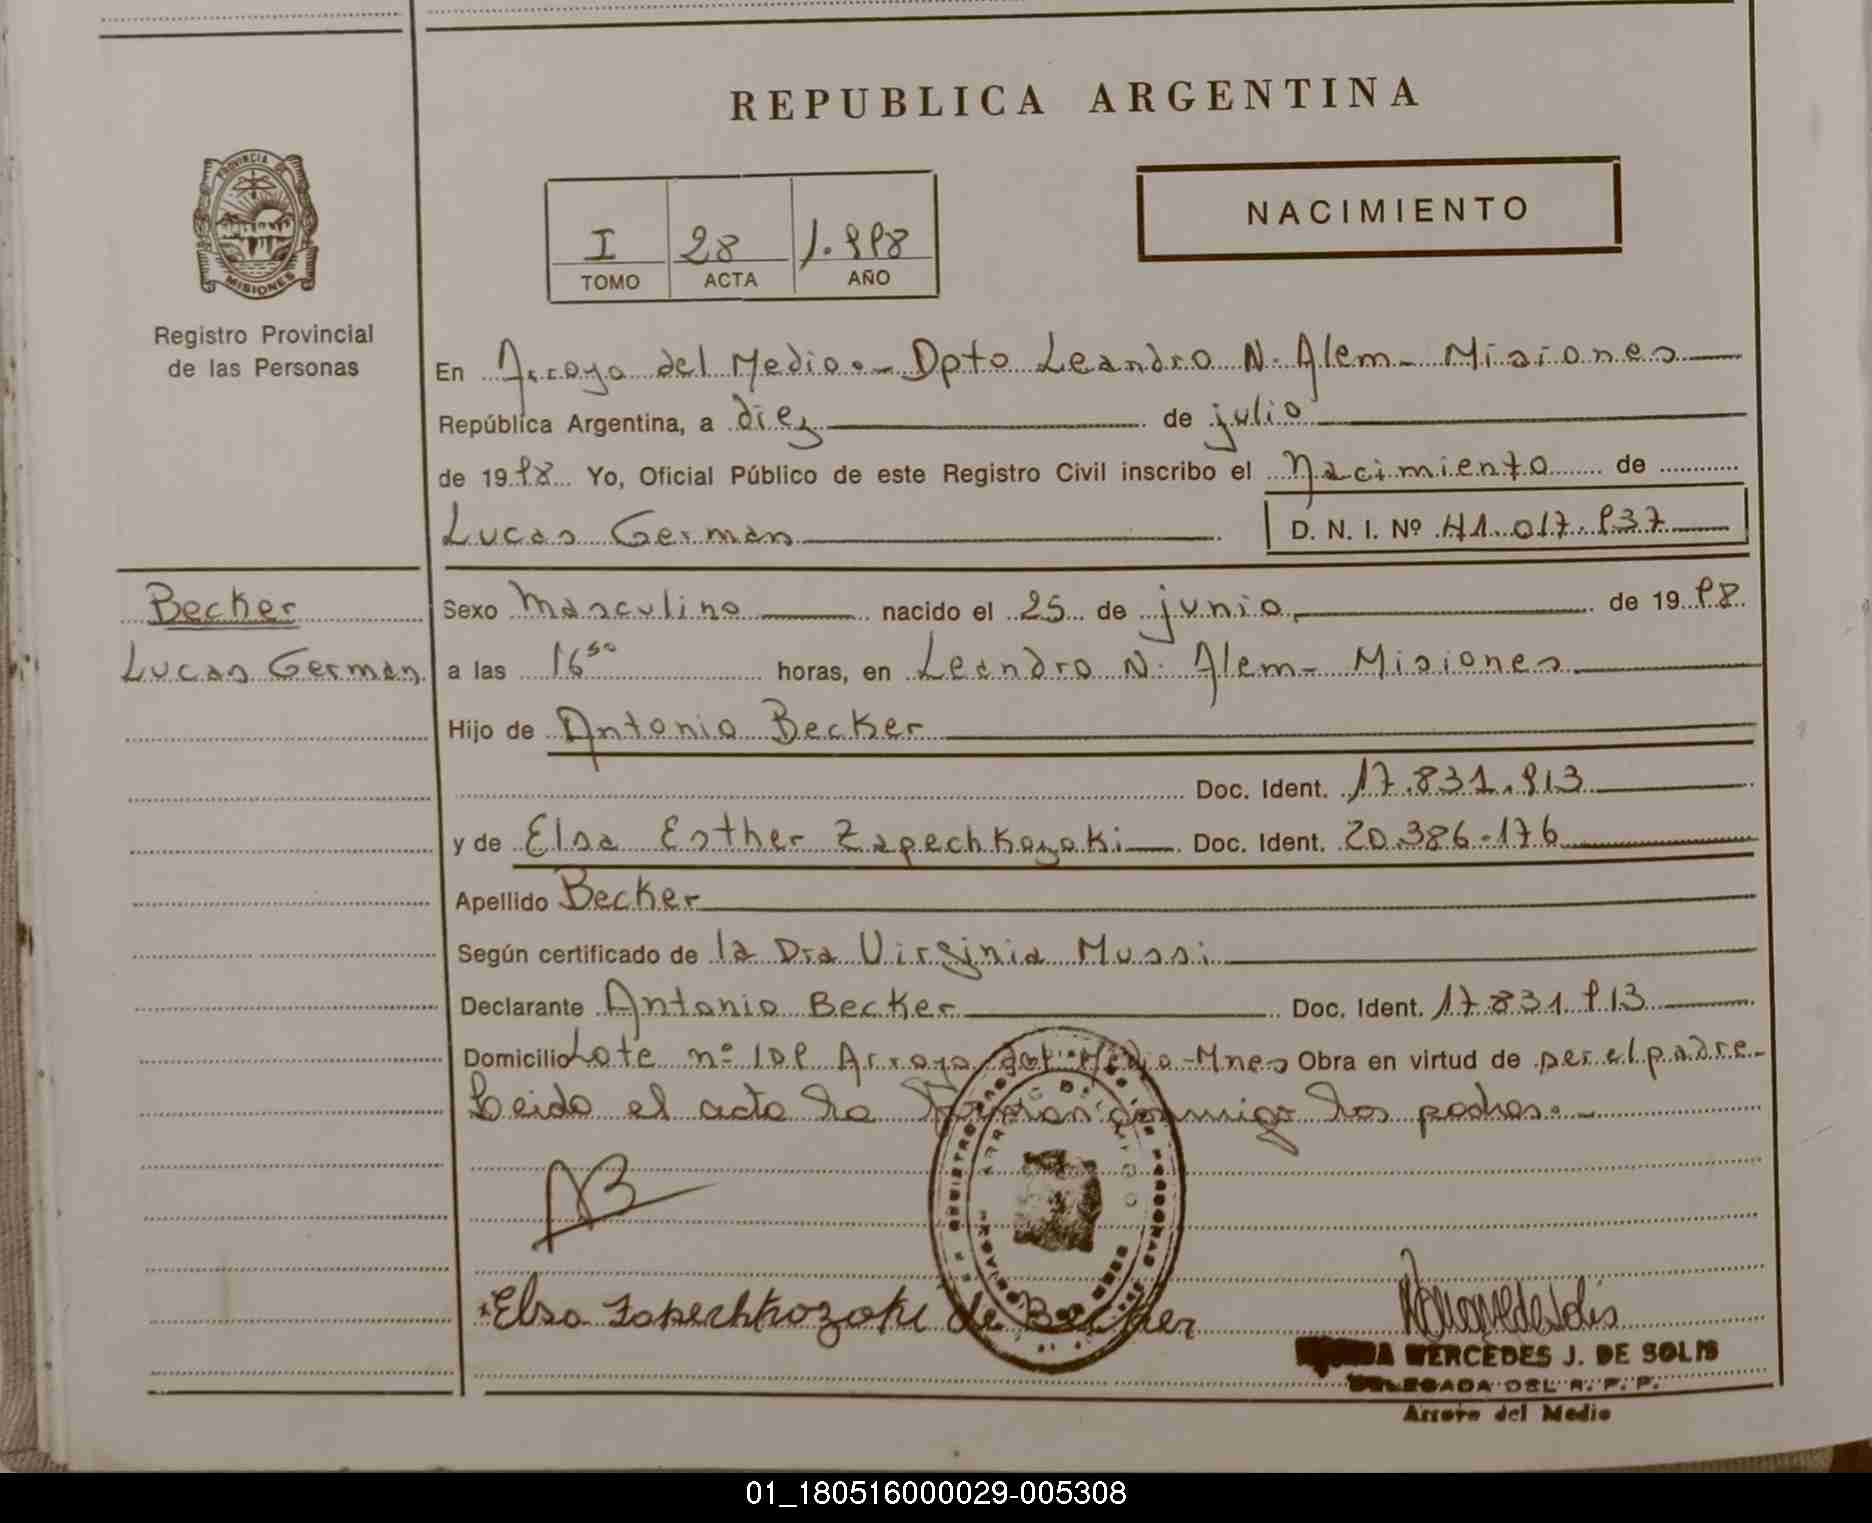 REPUBLICA ARGENTINA
PROVINCIA DE
MISIONES
Registro Provincial
de las Personas
I 28 1.998
TOMO ACTA AÑO
NACIMIENTO
En Arroyo del Medio.- Dpto Leandro N. Alem- Misiones
República Argentina, a diez de julio
de 1998 Yo, Oficial Público de este Registro Civil inscribo el Nacimiento de
Lucas German D. N. I. Nº 41.017.937
Becker
Lucas German
Sexo Masculino nacido el 25 de junio de 1998
a las 16 50 horas, en Leandro N. Alem- Misiones
Hijo de Antonio Becker
Doc. Ident. 17.831.913
y de Elsa Esther Zapechkozoki Doc. Ident. 20.386.176
Apellido Becker
Según certificado de la Dra Virginia Mussi
Declarante Antonio Becker Doc. Ident. 17.831.913
Domicilio Lote nº 109 Arroyo del Medio-Mnes Obra en virtud de ser el padre-
Leido el acta la firman conmigo los padres.-
AB
Elsa Zapechkozoki de Becker
MERCEDES J. DE SOLIS
DELEGADA DEL R. P. P.
Arroyo del Medio
01_180516000029-005308